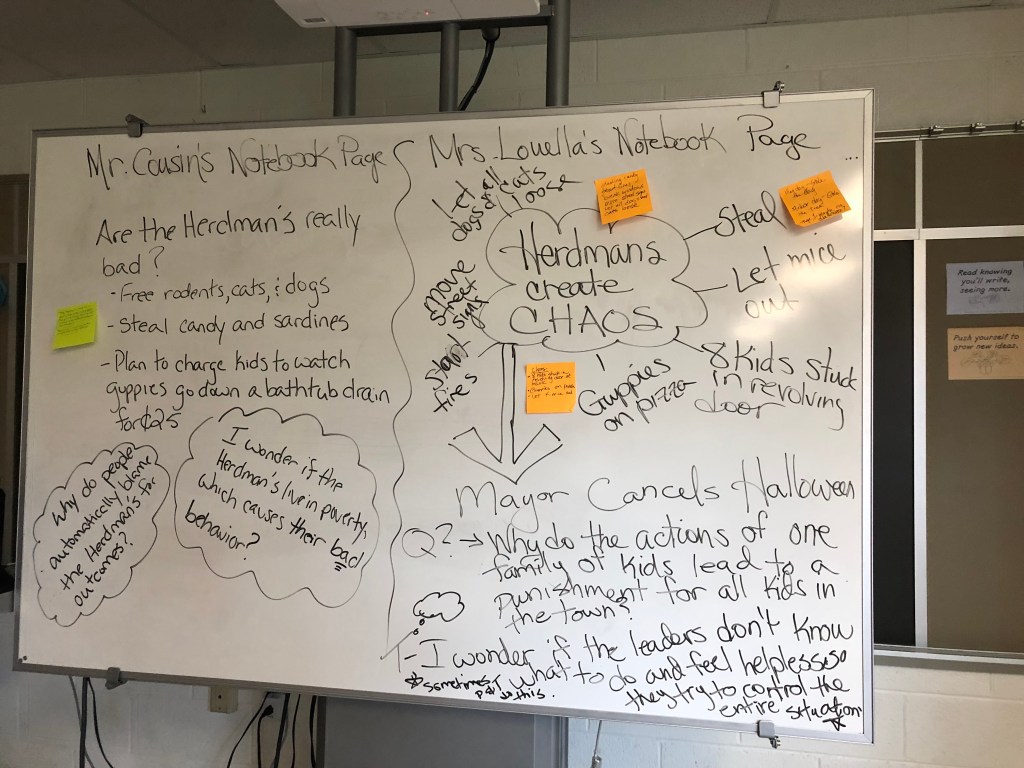 Mr. Cousin's Notebook Page
Are the Herdman's really
bad?
- Free rodents, cats, & dogs
- Steal candy and sardines
- Plan to charge kids to watch
guppies go down a bathtub drain
for
Why do people
automatically blame
the Herdman's for
outcomes?
I wonder if the
Herdman's live in poverty,
which causes their bad
behavior?
Mrs. Louella's Notebook Page ...
Let all
dogs & cats
loose
Herdmans
create
CHAOS
Steal
Let mice
out
8 kids stuck
in revolving
door
Guppies
on pizza
start
fires
move
street
signs
Mayor Cancels Halloween
Q? → Why do the actions of one
family of kids lead to a
punishment for all kids in
the town?
- I wonder if the leaders don't know
what to do and feel helpless so
they try to control the
entire situation
sometimes I
do this.
Read knowing
you'll write,
seeing more.
Push yourself to
grow new ideas.